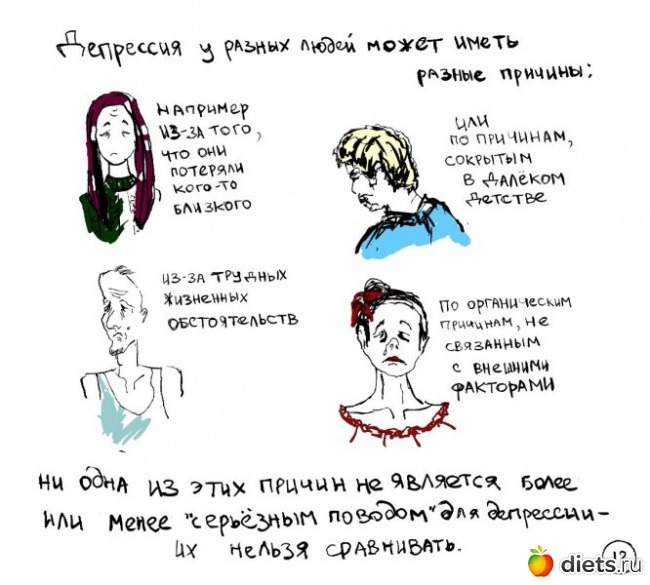 Депрессия у разных людей может иметь
разные причины:
например
из-за того,
что они
потеряли
кого-то
близкого
или
по причинам,
сокрытым
в далёком
детстве
из-за трудных
жизненных
обстоятельств
по органическим
причинам, не
связанным
с внешними
факторами
ни одна из этих причин не является более
или менее "серьёзным поводом" для депрессии-
их нельзя сравнивать.
12
diets.ru